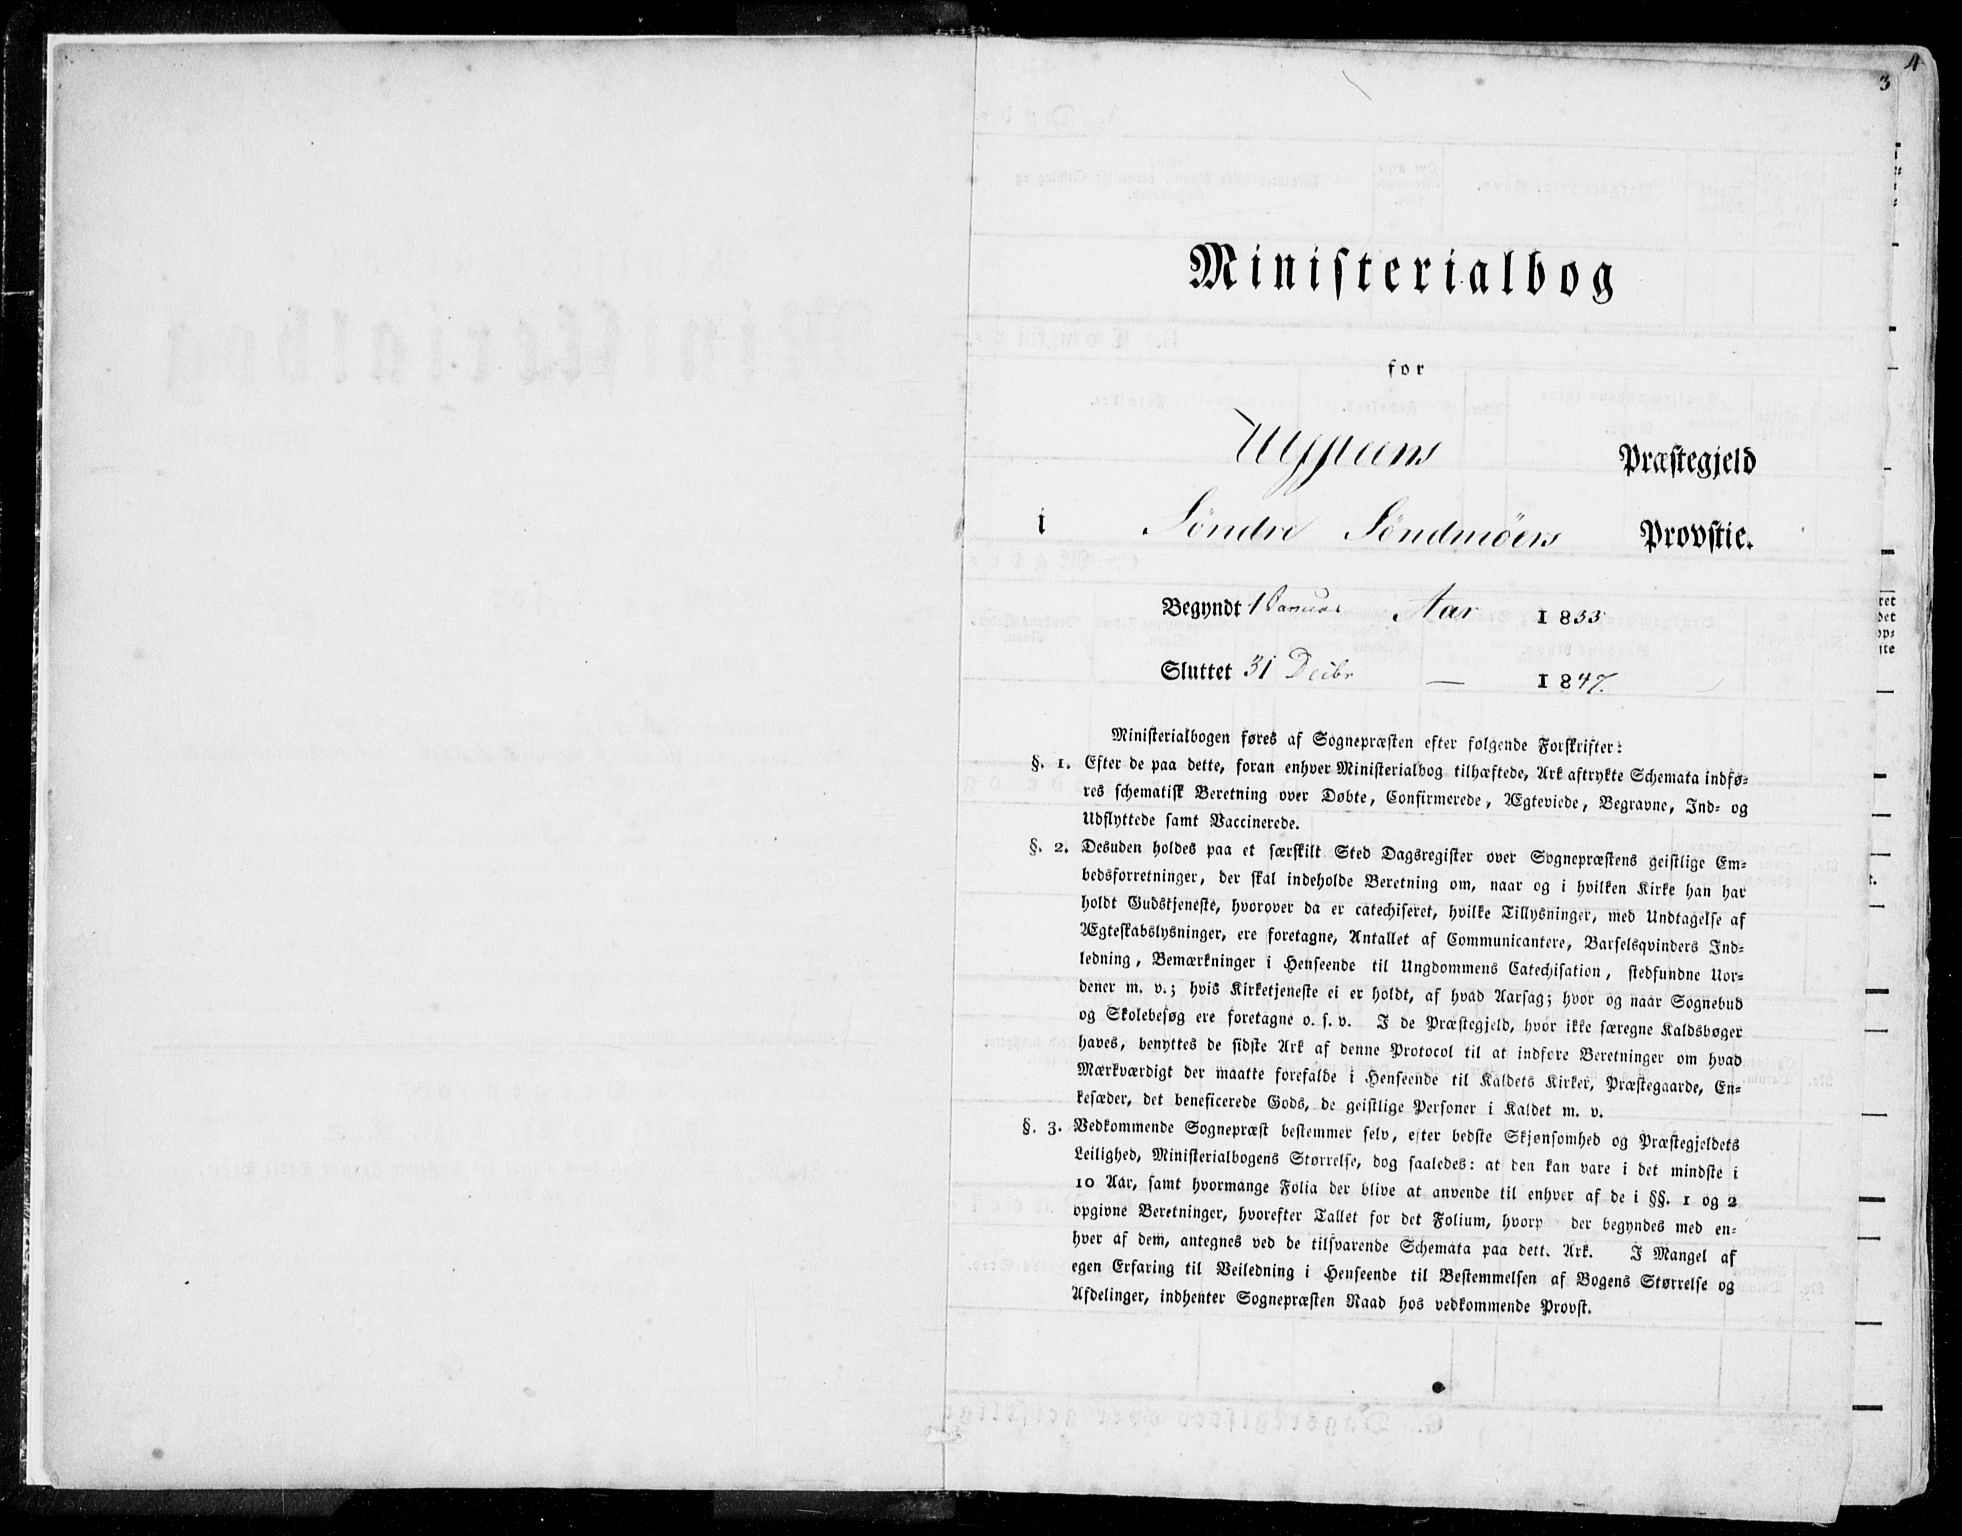 4
3
Ministerialbog
for
Ulfsteens Præstegjeld
i Søndre Søndmöers Provstie.
Begyndt 1 Januar Aar 1833
Sluttet 31 Decbr — 1847.
Ministerialbogen føres af Sognepræsten efter følgende Forskrifter:
§. 1. Efter de paa dette, foran enhver Ministerialbog tilhæftede, Ark aftrykte Schemata indfø-
res schematisk Beretning over Døbte, Confirmerede, Ægteviede, Begravne, Ind- og
Udflyttede samt Vaccinerede.
§. 2. Desuden holdes paa et særskilt Sted Dagsregister over Sognepræstens geistlige Em-
bedsforretninger, der skal indeholde Beretning om, naar og i hvilken Kirke han har
holdt Gudstjeneste, hvorover da er catechiseret, hvilke Tillysninger, med Undtagelse af
Ægteskabslysninger, ere foretagne, Antallet af Communicantere, Barselsqvinders Ind-
ledning, Bemærkninger i Henseende til Ungdommens Catechisation, stedfundne Uor-
dener m. v.; hvis Kirketjeneste ei er holdt, af hvad Aarsag; hvor og naar Sognebud
og Skolebesøg ere foretagne o. s. v. I de Præstegjeld, hvor ikke særegne Kaldsbøger
haves, benyttes de sidste Ark af denne Protocol til at indføre Beretninger om hvad
Mærkværdigt der maatte forefalde i Henseende til Kaldets Kirker, Præstegaarde, En-
kesæder, det beneficerede Gods, de geistlige Personer i Kaldet m. v.
§. 3. Vedkommende Sognepræst bestemmer selv, efter bedste Skjønsomhed og Præstegjeldets
Leilighed, Ministerialbogens Størrelse, dog saaledes: at den kan vare i det mindste i
10 Aar, samt hvormange Folia der blive at anvende til enhver af de i §§. 1 og 2
opgivne Beretninger, hvorefter Tallet for det Folium, hvorp der begyndes med en-
hver af dem, antegnes ved de tilsvarende Schemata paa dett. Ark. I Mangel af
egen Erfaring til Veiledning i Henseende til Bestemmelsen af Bogens Størrelse og
Afdelinger, indhenter Sognepræsten Raad hos vedkommende Provst.